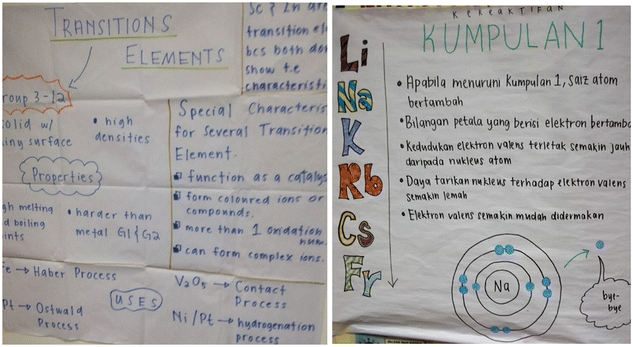 TRANSITIONS
ELEMENTS
Group 3-12
solid w/
surface
• high
densities
Properties
high melting
and boiling
points
• harder than
metal G1 & G2
Sc & Zn are
transition
bcs both
show t.e
Special
for Several Transition
Element.
function as a
form coloured ions or
compounds.
more than 1 oxidation
num.
can form complex ions.
Fe → Haber Process
Pt → Ostwald
Process
USES
V₂O₅ → Contact
Process
Ni / Pt → hydrogenation
process
KEREAKTIFAN
KUMPULAN 1
Li
Na
K
Rb
Cs
Fr
• Apabila menuruni Kumpulan 1, saiz atom
bertambah
• Bilangan petala yang berisi elektron
• Kedudukan elektron valens terletak semakin jauh
daripada nukleus atom
• Daya tarikan nukleus terhadap elektron valens
semakin lemah
• Elektron valens semakin mudah didermakan
Na
bye-
bye